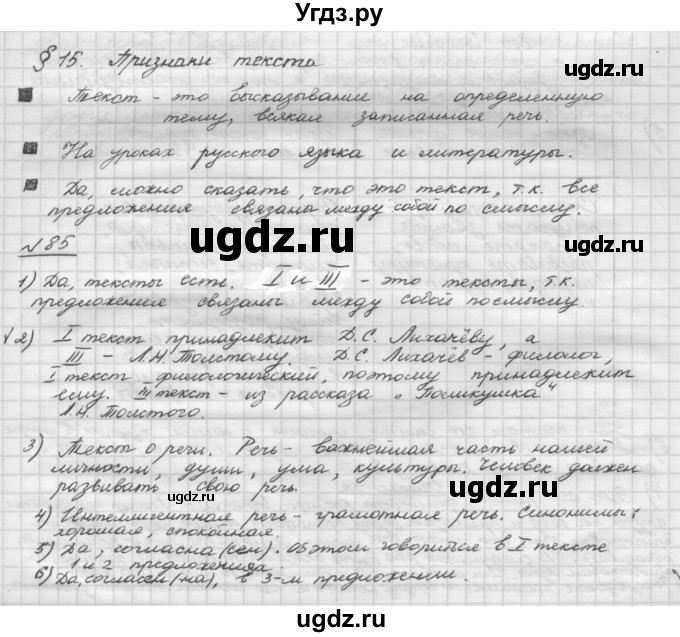 Угдз.ру
§ 15. Признаки текста
Текст - это высказывание на определенную
тему, всякая записанная речь.
На уроках русского языка и литературы.
Да, можно сказать, что это текст, т.к. все
предложения связаны между собой по смыслу.
№ 85
1) Да, тексты есть. I и III - это тексты, т.к.
предложения связаны между собой по смыслу.
2) I текст принадлежит Д.С. Лихачёву, а
III - Л.Н. Толстому. Д.С. Лихачёв - филолог,
I текст филологический, поэтому принадлежит
ему. III текст - из рассказа "Поликушка"
Л.Н. Толстого.
3) Текст о речи. Речь - важнейшая часть нашей
личности, души, ума, культуры. Человек должен
развивать свою речь.
4) Интеллигентная речь - грамотная речь. Синонимы:
хорошая, спокойная.
5) Да, согласна (сен). Об этом говорится в I тексте
1 и 2 предложения.
6) Да, согласен (-на), в 3-м предложении.
ugdz.ru
ugdz.ru
ugdz.ru
ugdz.ru
ugdz.ru
ugdz.ru
ugdz.ru
ugdz.ru
ugdz.ru